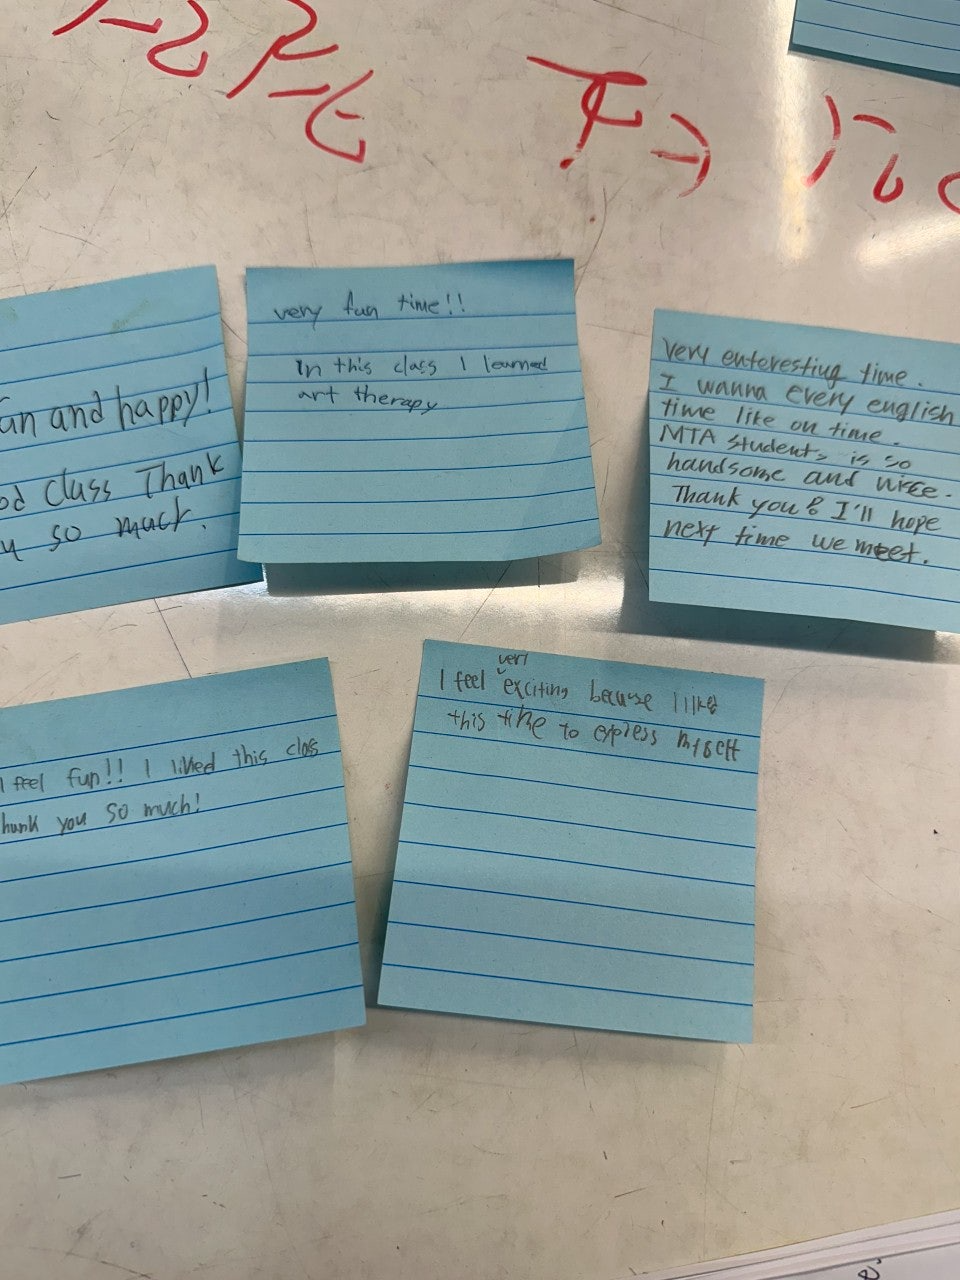 an and happy!
od class Thank
u so much.
very fun time!!
In this class I learned
art therapy
Very enteresting time.
I wanna every english
time like on time.
MTA students is so
handsome and nice.
Thank you! I'll hope
next time we meet.
I feel fun!! I liked this clas
hank you so much!
very
I feel exciting because I like
this time to express myself